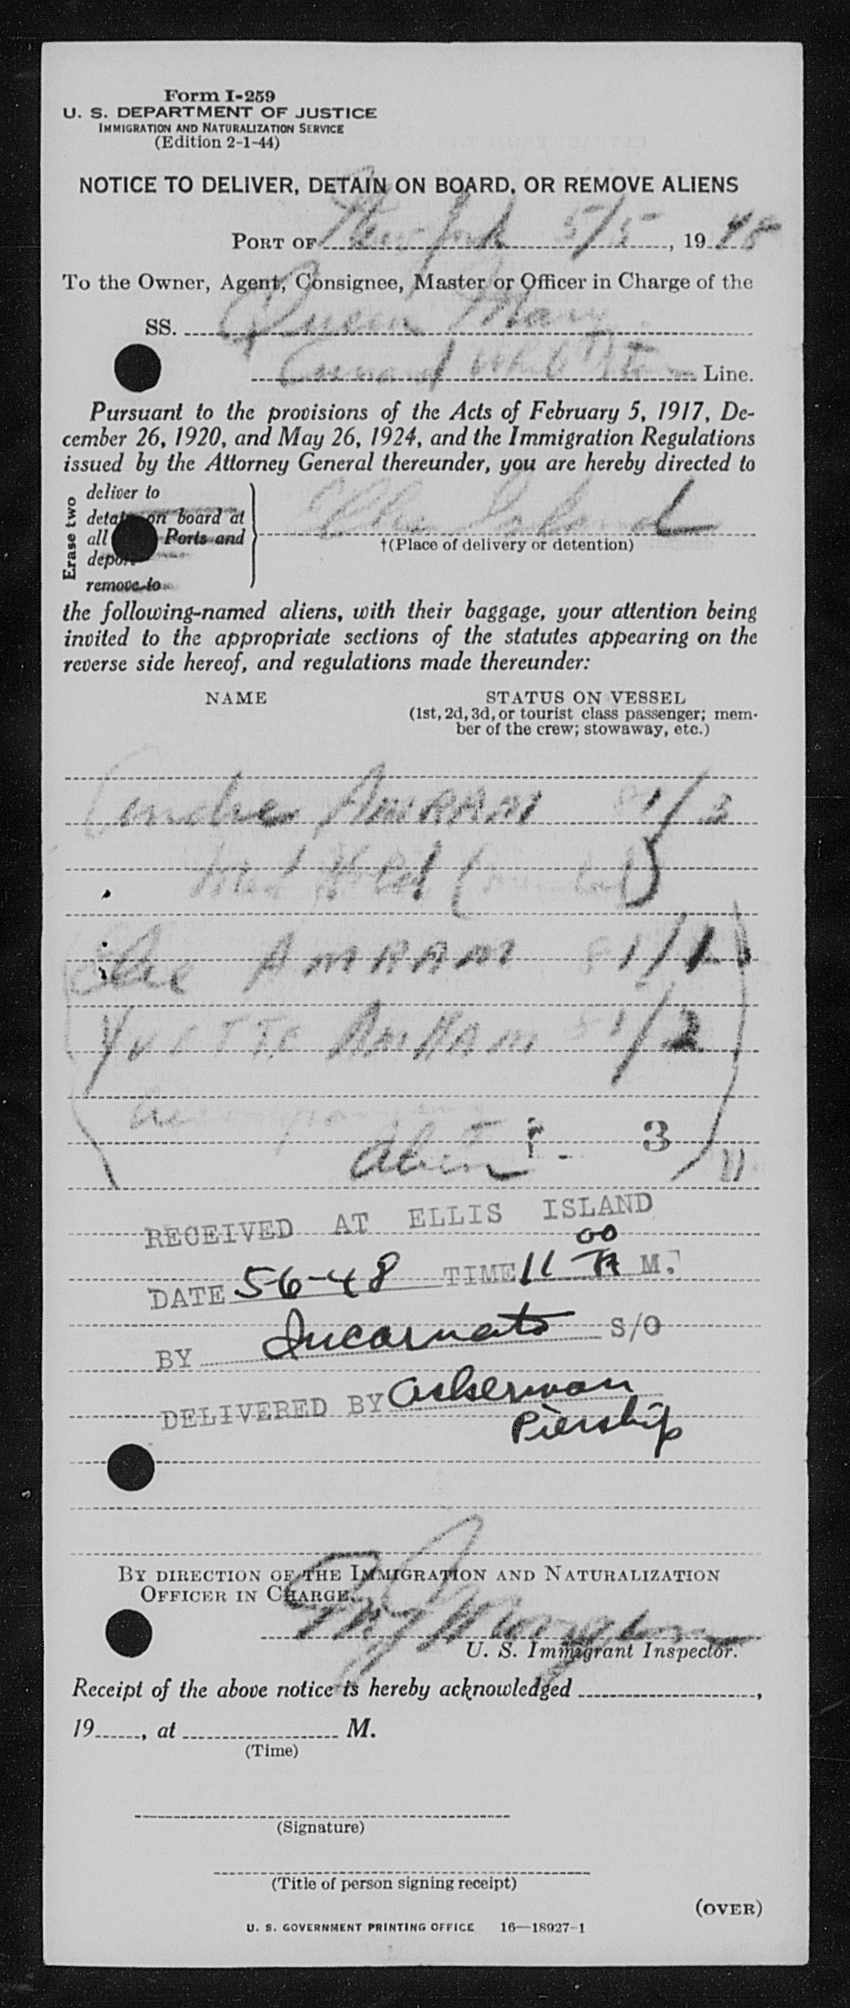 Form I-259
U. S. DEPARTMENT OF JUSTICE
IMMIGRATION AND NATURALIZATION SERVICE
(Edition 2-1-44)
NOTICE TO DELIVER, DETAIN ON BOARD, OR REMOVE ALIENS
PORT OF New York 5/5, 1948
To the Owner, Agent, Consignee, Master or Officer in Charge of the
SS. Queen Mary
Cunard White Star Line.
Pursuant to the provisions of the Acts of February 5, 1917, De-
cember 26, 1920, and May 26, 1924, and the Immigration Regulations
issued by the Attorney General thereunder, you are hereby directed to
Erase two
deliver to
detain on board at
all Ports and
deport
remove to
Ellis Island
†(Place of delivery or detention)
the following-named aliens, with their baggage, your attention being
invited to the appropriate sections of the statutes appearing on the
reverse side hereof, and regulations made thereunder:
NAME STATUS ON VESSEL
(1st, 2d, 3d, or tourist class passenger; mem-
ber of the crew; stowaway, etc.)
Andre AMRAM 81/3
Med Hold
Elie AMRAM 81/1
YVETTE AMRAM 81/2
Accompanying
Alien 3
RECEIVED AT ELLIS ISLAND
DATE 5-6-48 TIME 11 00 A M.
BY Incarnato S/O
DELIVERED BY Ackerman
Piership
BY DIRECTION OF THE IMMIGRATION AND NATURALIZATION
OFFICER IN CHARGE.
U. S. Immigrant Inspector.
Receipt of the above notice is hereby acknowledged ,
19 , at M.
(Time)
(Signature)
(Title of person signing receipt)
(OVER)
U. S. GOVERNMENT PRINTING OFFICE 16—18927-1